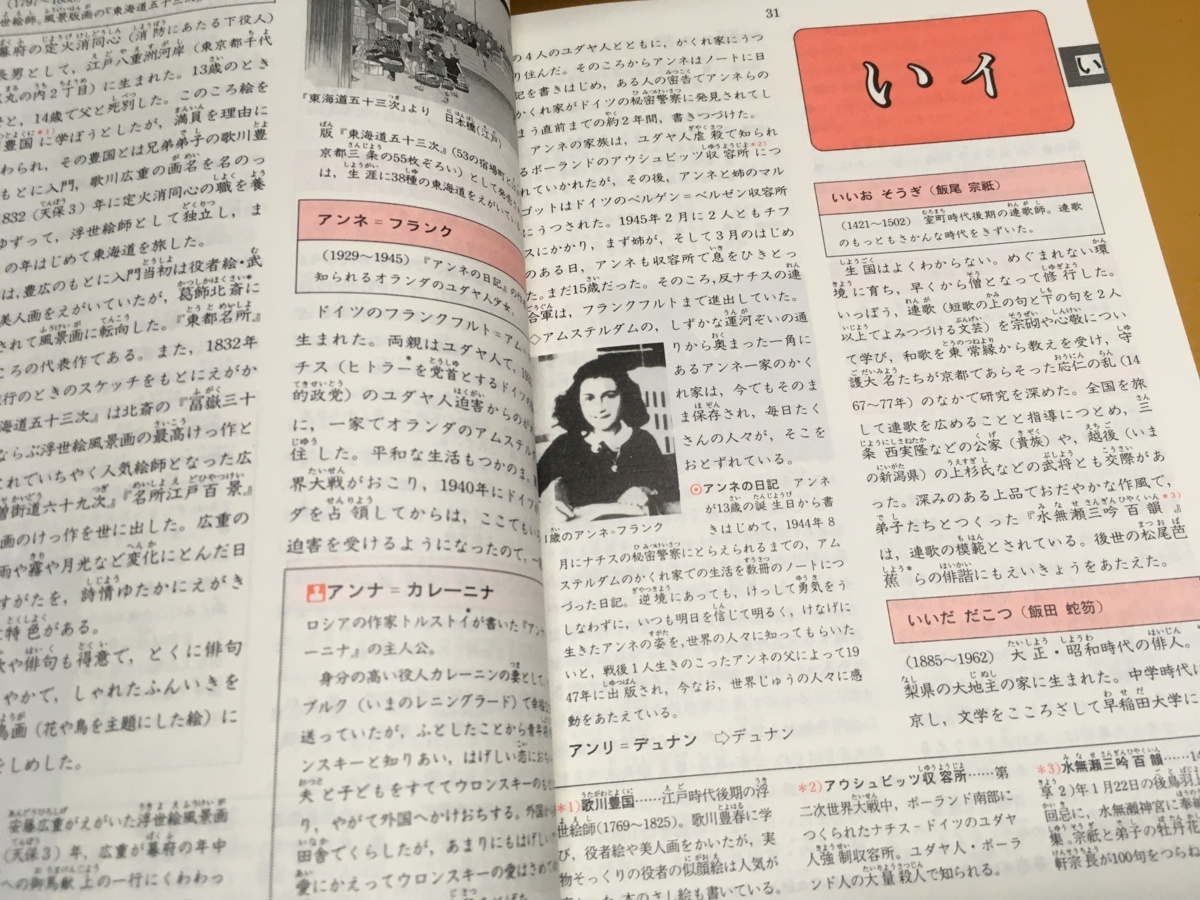 世絵師。風景版画の『東海道五十三
幕府の定火消同心（消防にあたる下役人）
長男として，江戸八重洲河岸（東京都千代
丸の内2丁目）に生まれた。13歳のとき
と，14歳で父と死別した。このころ絵を
豊国に学ぼうとしたが，満員を理由に
わられ，その豊国とは兄弟弟子の歌川豊
もとに入門，歌川広重の画名を名のっ
1832（天保3）年に定火消同心の職を養
ゆずって，浮世絵師として独立し，ま
の年はじめて東海道を旅した。
は，豊広のもとに入門当初は役者絵・武
美人画をえがいていたが，葛飾北斎に
されて風景画に転向した。『東都名所』
ころの代表作である。また，1832年
行のときのスケッチをもとにえがか
海道五十三次』は北斎の『富嶽三十
ならぶ浮世絵風景画の最高けっ作と
これでいちやく人気絵師となった広
曽街道六十九次』『名所江戸百景』
画のけっ作を世に出した。広重の
雨や霧や月光など変化にとんだ日
すがたを，詩情ゆたかにえがき
特色がある。
や俳句も得意で，とくに俳句
やかで，しゃれたふんいきを
鳥画（花や鳥を主題にした絵）に
をしめした。
安藤広重がえがいた浮世絵風景画
（天保3）年，広重が幕府の年中
への御馬献上の一行にくわわっ
『東海道五十三次』より 日本橋（江戸）
版『東海道五十三次』（53の宿場町と
京都三条の55枚ぞろい）として発売
は，生涯に38種の東海道をえがいて
アンネ＝フランク
（1929〜1945）『アンネの日記』の
知られるオランダのユダヤ人少女。
ドイツのフランクフルト＝アム
生まれた。両親はユダヤ人で，
チス（ヒトラーを党首とするドイツの
的政党）のユダヤ人迫害からのが
に，一家でオランダのアムステル
住した。平和な生活もつかのま，
界大戦がおこり，1940年にドイツ
ダを占領してからは，ここでも
迫害を受けるようになったので，
アンナ＝カレーニナ
ロシアの作家トルストイが書いた『アン
ーニナ』の主人公。
身分の高い役人カレーニンの妻として，
ブルク（いまのレニングラード）で幸福
送っていたが，ふとしたことから青年
ンスキーと知りあい，はげしい恋に
夫と子どもをすててウロンスキーのも
り，やがて外国へかけおちする。外国
田舎でくらしたが，あまりにもはげし
愛にかえってウロンスキーの愛はさめて
31
の4人のユダヤ人とともに，かくれ家にうつ
り住んだ。そのころからアンネはノートに日
記を書きはじめ，ある人の密告でアンネらの
かくれ家がドイツの秘密警察に発見されてし
まう直前までの約2年間，書きつづけた。
アンネの家族は，ユダヤ人虐殺で知られ
るポーランドのアウシュビッツ収容所*2)につ
れていかれたが，その後，アンネと姉のマル
ゴットはドイツのベルゲン＝ベルゼン収容所
にうつされた。1945年2月に2人ともチフ
スにかかり，まず姉が，そして3月のはじめ
のある日，アンネも収容所で息をひきとっ
た。まだ15歳だった。そのころ，反ナチスの連
合軍は，フランクフルトまで進出していた。
◇アムステルダムの，しずかな運河ぞいの通
りから奥まった一角に
あるアンネ一家のかく
れ家は，今でもそのま
ま保存され，毎日たく
さんの人々が，そこを
おとずれている。
歳のアンネ＝フランク
アンネの日記 アンネ
が13歳の誕生日から書
きはじめて，1944年8
月にナチスの秘密警察にとらえられるまでの，アム
ステルダムのかくれ家での生活を数冊のノートにつ
づった日記。逆境にあっても，けっして勇気をう
しなわずに，いつも明日を信じて明るく，けなげに
生きたアンネの姿を，世界の人々に知ってもらいた
いと，戦後1人生きのこったアンネの父によって19
47年に出版され，今なお，世界じゅうの人々に感
動をあたえている。
アンリ＝デュナン ⇨デュナン
いイ
い
いいお そうぎ（飯尾 宗祇）
（1421〜1502）室町時代後期の連歌師。連歌
のもっともさかんな時代をきずいた。
生国はよくわからない。めぐまれない環
境に育ち，早くから僧となって修行した。
いっぽう，連歌（短歌の上の句と下の句を2人
以上でよみつづける文芸）を宗砌や心敬につい
て学び，和歌を東常縁から教えを受け，守
護大名たちが京都であらそった応仁の乱（14
67〜77年）のなかで研究を深めた。全国を旅
して連歌を広めることと指導につとめ，三
条西実隆などの公家（貴族）や，越後（いま
の新潟県）の上杉氏などの武将とも交際があ
った。深みのある上品でおだやかな作風で，
弟子たちとつくった『水無瀬三吟百韻*3)』
は，連歌の模範とされている。後世の松尾芭
蕉*らの俳諧にもえいきょうをあたえた。
いいだ だこつ（飯田 蛇笏）
（1885〜1962）大正・昭和時代の俳人。
梨県の大地主の家に生まれた。中学時代に
京し，文学をこころざして早稲田大学に
*1)歌川豊国……江戸時代後期の浮
世絵師（1769〜1825）。歌川豊春に学
び，役者絵や美人画をかいたが，実
物そっくりの役者の似顔絵は人気が
本のさし絵も書いている。
*2)アウシュビッツ収容所……第
二次世界大戦中，ポーランド南部に
つくられたナチス-ドイツのユダヤ
人強制収容所。ユダヤ人・ポーラ
ンド人の大量殺人で知られる。
*3)水無瀬三吟百韻……
享2）年1月22日の後鳥羽
回忌に，水無瀬神宮に奉納
集。宗祇と弟子の牡丹花
軒宗長が100句をつらね